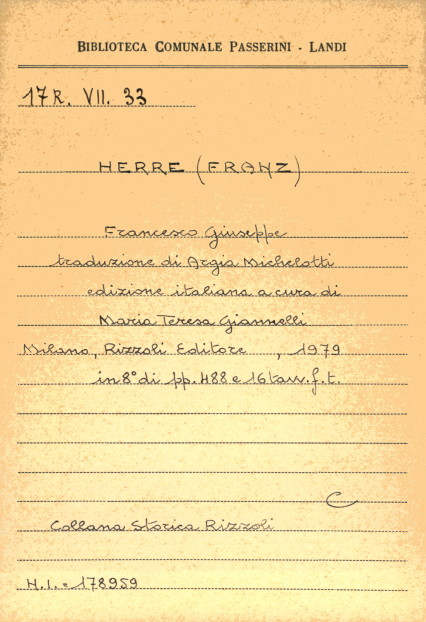 BIBLIOTECA COMUNALE PASSERINI - LANDI
17R. VII. 33
HERRE (FRANZ)
Francesco Giuseppe
traduzione di Argia Michelotti
edizione italiana a cura di
Maria Teresa Giannelli
Milano, Rizzoli Editore , 1979
in 8° di pp. 488 e 16 tavv. f. t.
C
Collana Storica Rizzoli
N.I. = 178959